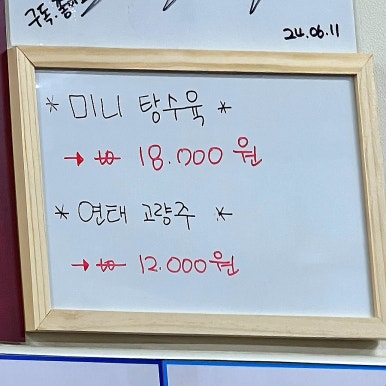 구독.좋아요
24.06.11
* 미니 탕수육 *
→ 18.000원
* 연태 고량주 *
→ 12.000원